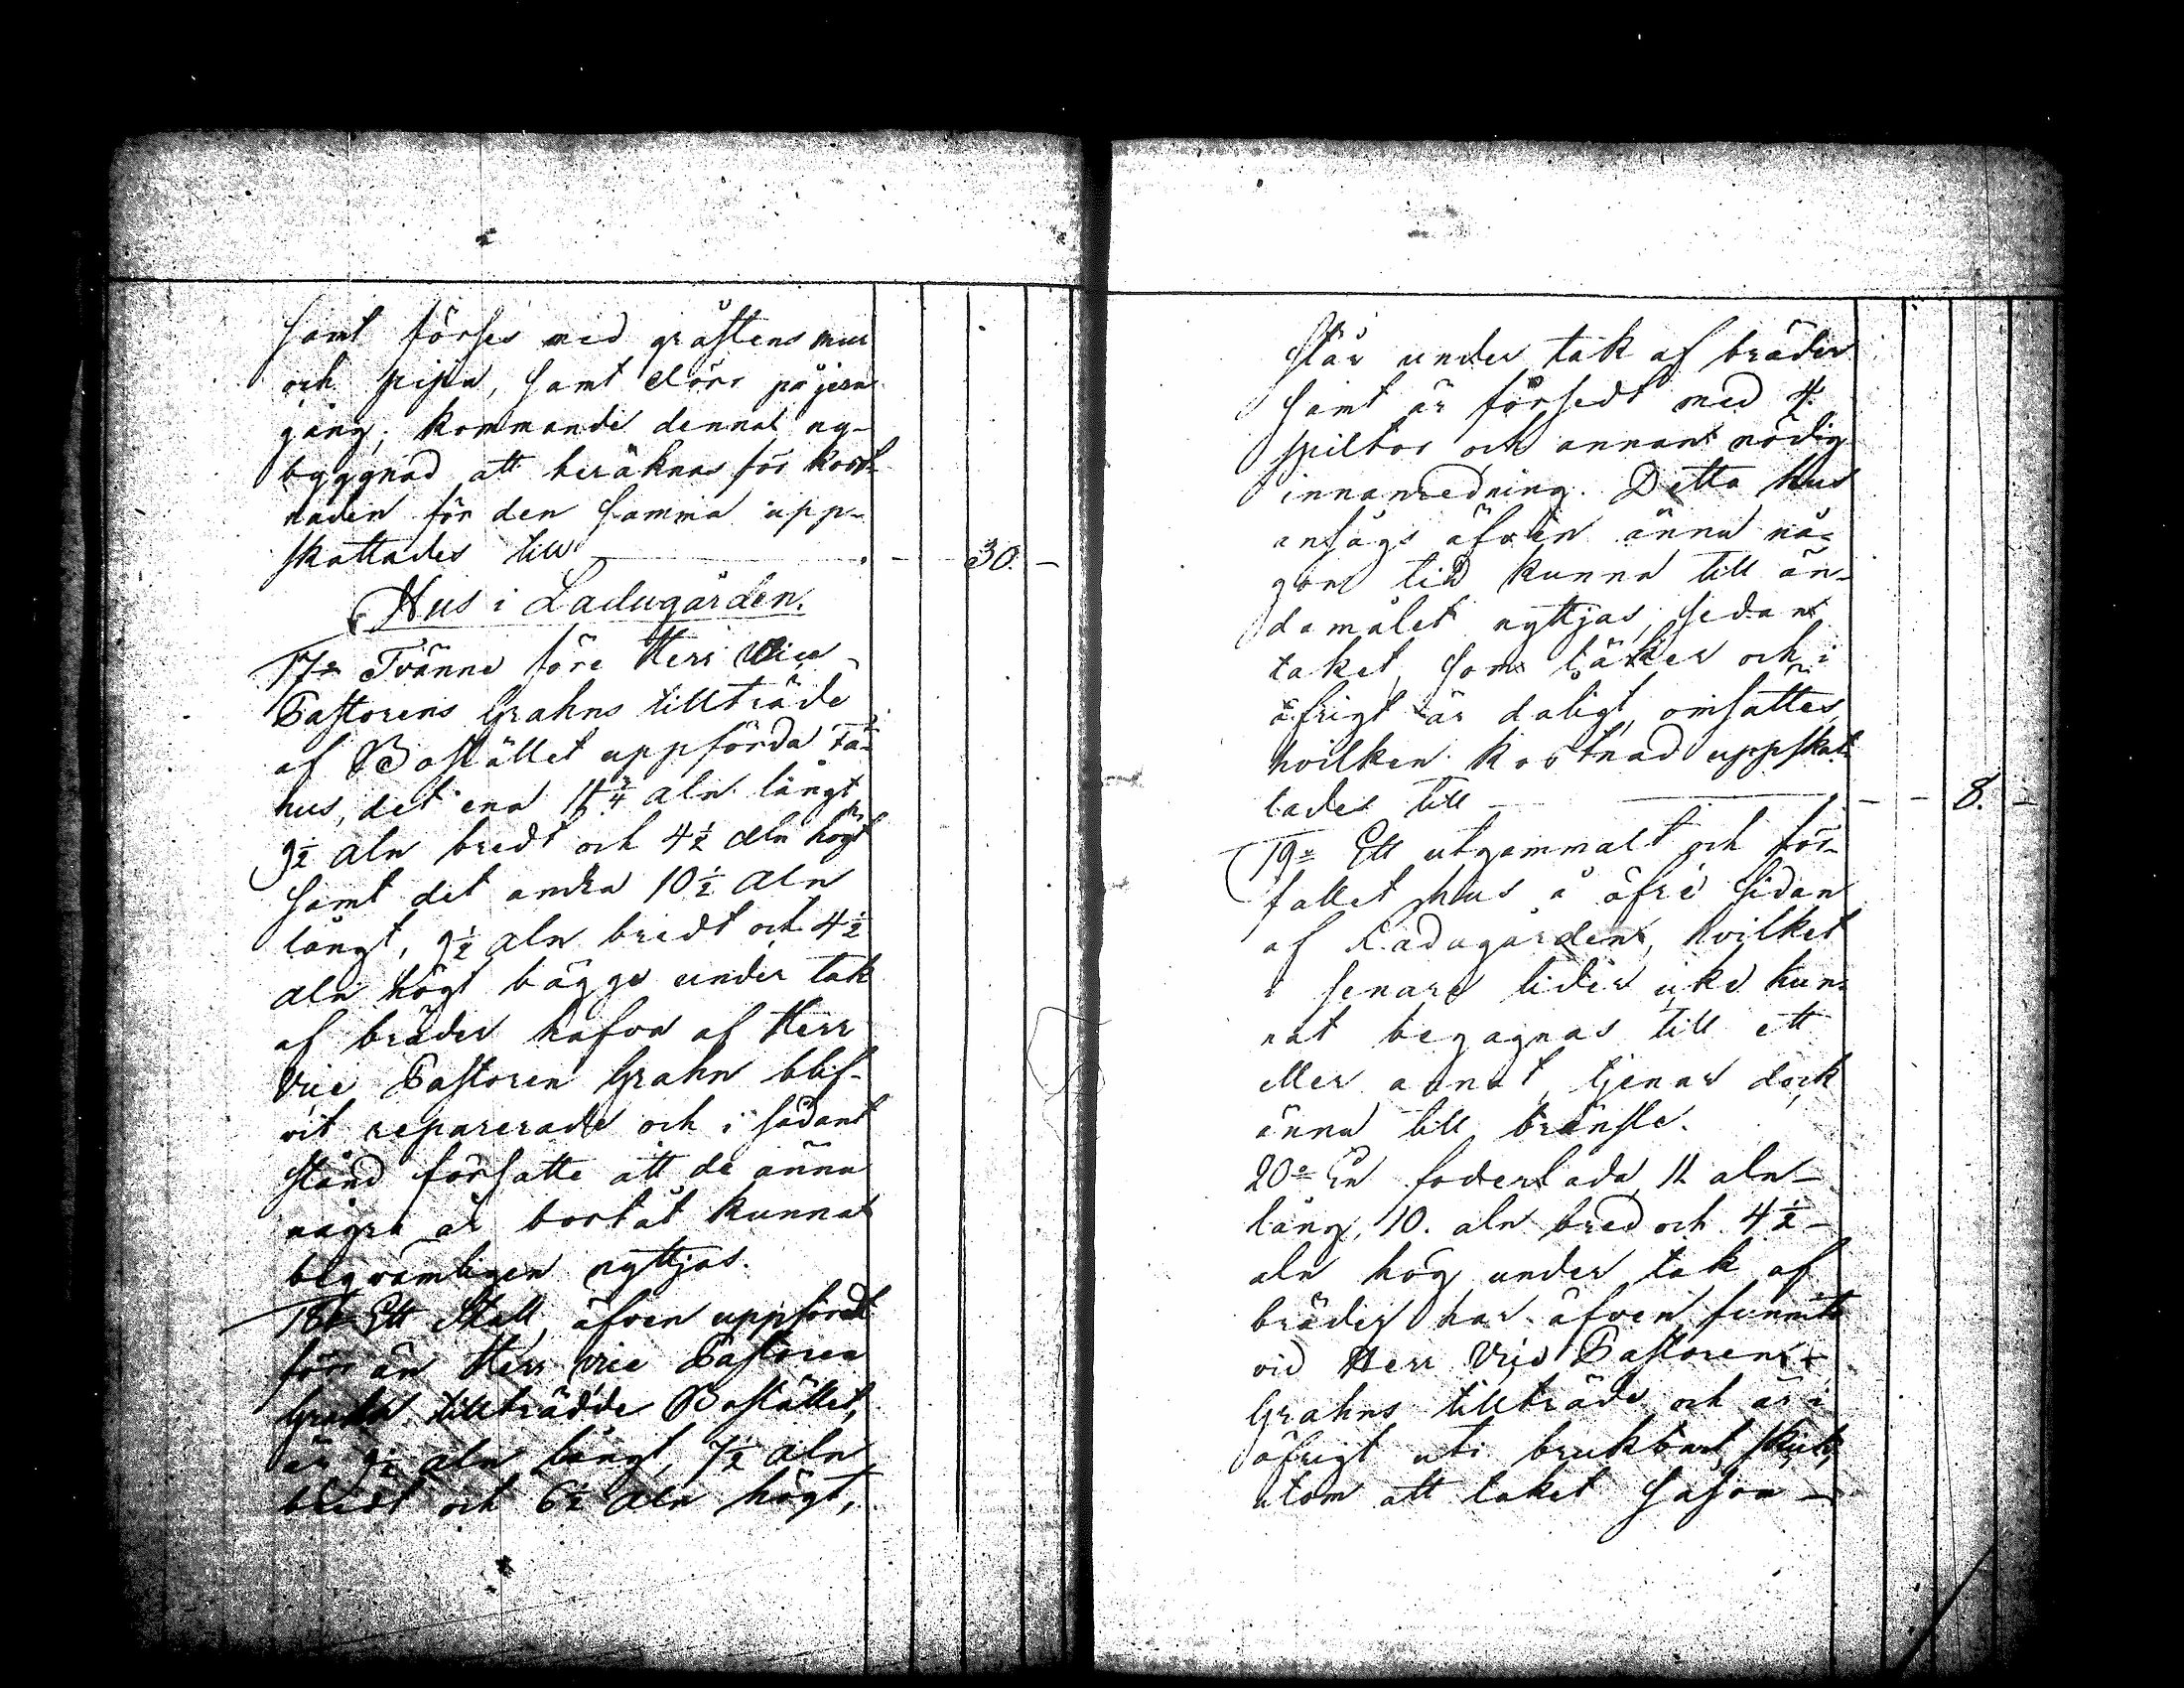 samt förses med gråstens mur
och pipa, samt dörr på jern
gång; kommande dennal ny-
byggnad att beräknas för kost-
naden för den samma upp-
skattades till — 30. —
Hus i Ladugården.
17o Tvänne före Herr Vice
Pastorens Grahns tillträde
af Bostället uppförda Fä-
hus, det ena 11 3/4 aln långt
9 1/2 aln bredt och 4 1/2 aln högt
samt det andra 10 1/2 aln
långt, 9 1/2 aln bredt och 4 1/2
aln högt bägge under tak
af bräder hafva af Herr
Vice Pastoren Grahn blif-
vit reparerade och i sådant
stånd försatte att de ännu
några år bortåt kunna
beqvämligen nyttjas.
18o Ett Stall, äfven uppfördt
förr än Herr vice Pastoren
Grahn tillträdde Bostället,
är 9 1/2 aln långt, 7 1/2 aln
bredt och 6 1/2 aln högt,
står under tak af bräder
samt är försedt med 4.
spiltor och annan nödig
innanredning. Detta hus
ansågs äfven ännu nå-
gon tid kunna till än-
damålet nyttjas, sedan
taket, som läker och i
öfrigt är dåligt, omsattes,
hvilken kostnad uppskat-
tades till — 8. —
19o Ett utgammalt och för-
fallet hus å öfre sidan
af Ladugården, hvilket
i senare tider icke kun-
nat begagnas till ett
eller annat, tjenar dock
ännu till bränsle.
20o En foderlada, 11 aln
lång, 10. aln bred och 4 1/2
aln hög under tak af
bräder har äfven funnits
vid Herr Vice Pastoren
Grahns tillträde och är i
öfrigt uti brukbart skick,
utom att taket såsom —